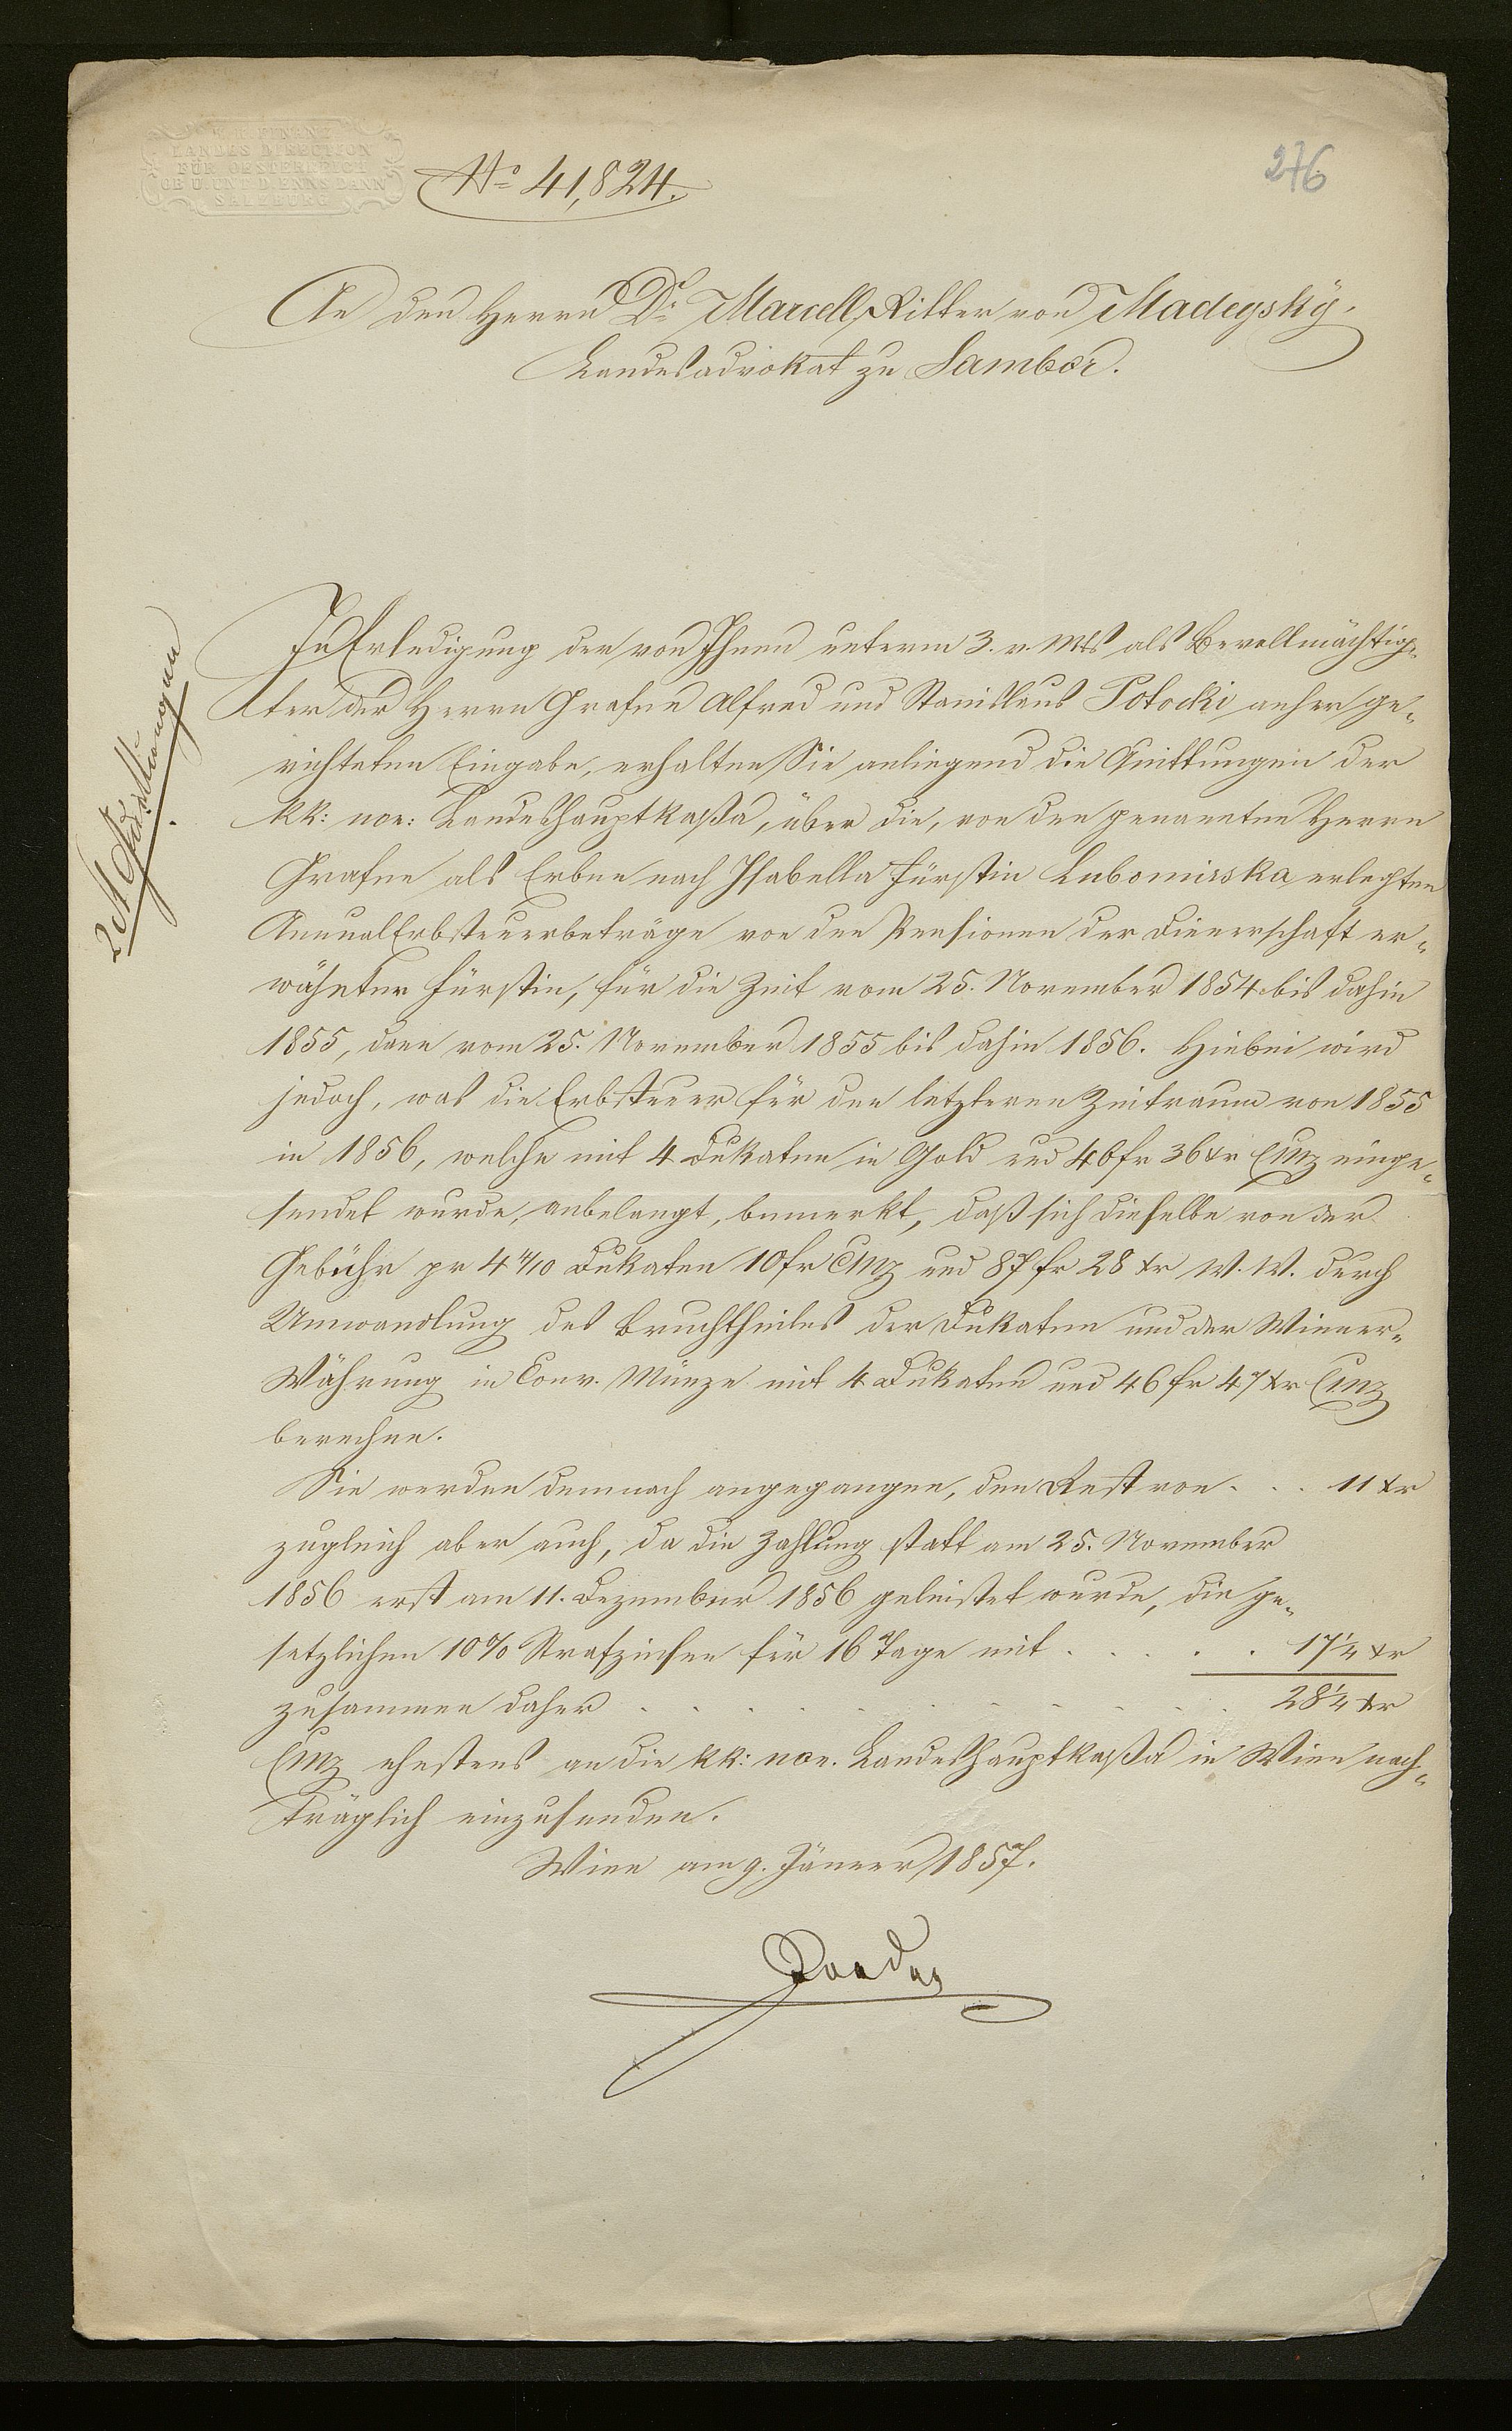 K. K. FINANZ
LANDES DIRECTION
FÜR OESTERREICH
OB U. UNT. D. ENNS DANN
SALZBURG
No 41,824.
276
An den Herrn Dr Marcell Ritter von Madeyský,
Landesadvokat zu Sambor.
In Erledigung der von Ihnen unterm 3. v. Mts als Bevollmächtig„
ter der Herrn Grafen Alfred und Stanislaus Potocki anher ge„
richteten Eingabe, erhalten Sie anliegend die Quittungen der
kk: noe: Landeshauptkaßa, über die, von den genannten Herrn
Grafen als Erben nach Isabella Fürstin Lubomirska erlegten
Annual Erbsteuerbeträge von den Pensionen der Dienerschaft er„
wähnter Fürstin, für die Zeit vom 25. November 1854 bis dahin
1855, dann vom 25. November 1855 bis dahin 1856. Hiebei wird
jedoch, was die Erbsteuer für den letzteren Zeitraum von 1855
in 1856, welche mit 4 Dukaten in Gold und 46 fr 36 xr CMz einge„
sendet wurde, anbelangt, bemerkt, daß sich dieselbe von der
Gebühr pr 4 4/10 Dukaten 10 fr CMz und 87 fr 28 xr W. W. durch
Umwandlung des Bruchtheiles der Dukaten und der Wiener„
Währung in Conv. Münze mit 4 Dukaten und 46 fr 47 xr CMz
berechne.
Sie werden demnach angegangen, den Rest von . . . 11 xr
zugleich aber auch, da die Zahlung statt am 25. November
1856 erst am 11. Dezember 1856 geleistet wurde, die ge„
setzlichen 10% Strafzinsen für 16 Tage mit . . . . . 17 1/4 xr
zusammen daher . . . . . . . . . . . 28 1/4 xr
CMz ehestens an die kk: noe. Landeshauptkaßa in Wien nach„
träglich einzusenden.
Wien am 9. Jänner 1857.
2 Quittungen